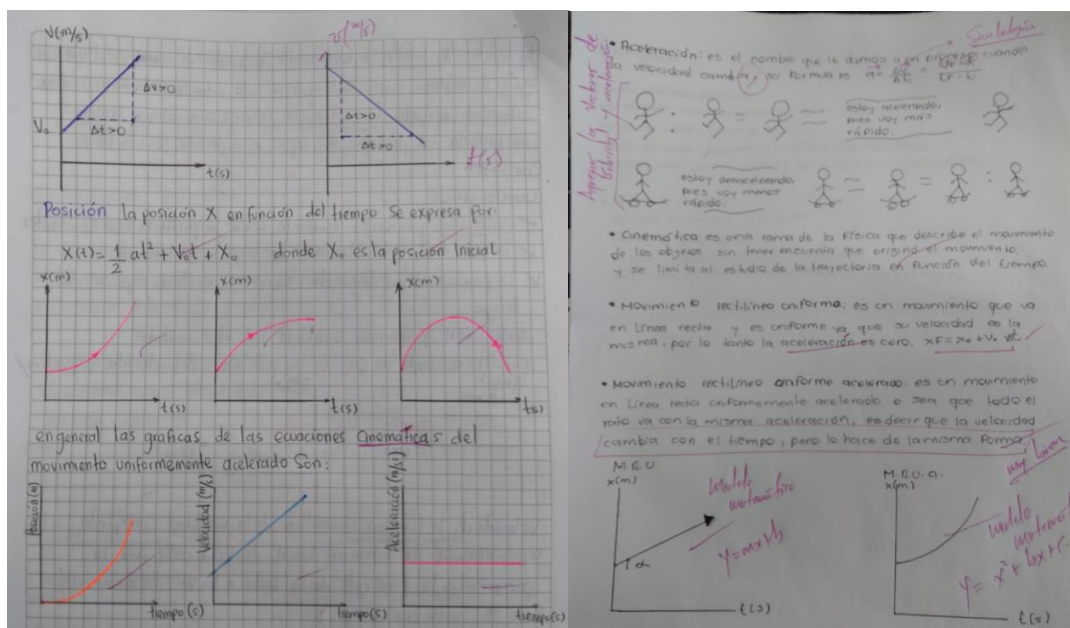 V(m/s)
Δv>0
V₀
Δt>0
t(s)
v(m/s)
Δt>0
Δt>0
t(s)
Posición la posición X en función del tiempo se expresa por:
X(t)=1/2 at² + V₀t + X₀ donde X₀ es la posición Inicial
x(m)
t(s)
x(m)
t(s)
x(m)
t(s)
en general las graficas de las ecuaciones cinematicas del
movimiento uniformemente acelerado son:
Posición(m)
tiempo(s)
Velocidad (m/s)
tiempo(s)
Aceleración
tiempo(s)
Simbología
• Aceleración: es el nombre que le damos a un proceso cuando
la velocidad cambia, su formula es
Agregar los vectores de
velocidad y aceleración
estoy acelerando,
pues voy mas
rápido.
estoy desacelerando,
pues voy menos
rápido.
• Cinemática: es una rama de la física que describe el movimiento
de los objetos sin tener encuenta que originó el movimiento,
y se limita al estudio de la trayectoria en función del tiempo.
• Movimiento rectilíneo uniforme: es un movimiento que va
en línea recta y es uniforme ya que su velocidad es la
misma, por lo tanto la aceleración es cero. xF= x₀ + V₀ t
• Movimiento rectilíneo uniforme acelerado: es un movimiento
en línea recta uniformemente acelerado o sea que todo el
rato va con la misma aceleración, es decir que la velocidad
cambia con el tiempo, pero lo hace de la misma forma.
muy bien
M.R.U
x(m)
modelo
matemático
Y=mx+b
α
t(s)
M.R.U.a.
x(m)
modelo
Y= x²+bx+c
t(s)